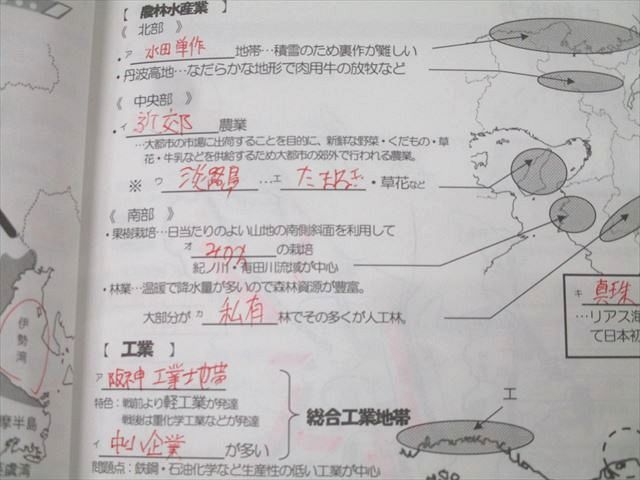 【 農林水産業 】
《 北部 》
・ア 水田単作 地帯…積雪のため裏作が難しい
・丹波高地…なだらかな地形で肉用牛の放牧など
《 中央部 》
・イ 近郊 農業
…大都市の市場に出荷することを目的に、新鮮な野菜・くだもの・草
花・牛乳などを供給するため大都市の郊外で行われる農業。
※ ウ 淡路島 …エ たまねぎ ・草花など
《 南部 》
・果樹栽培…日当たりのよい山地の南側斜面を利用して
オ みかん の栽培
紀ノ川・有田川流域が中心
・林業…温暖で降水量が多いので森林資源が豊富。
大部分が カ 私有 林でその多くが人工林。
キ 真珠
…リアス海
て日本初
【 工業 】
ア 阪神工業地帯
特色：戦前より軽工業が発達
戦後は重化学工業などが発達
イ 中小企業 が多い
問題点：鉄鋼・石油化学など生産性の低い工業が中心
総合工業地帯
エ
伊勢湾
摩半島
虞湾